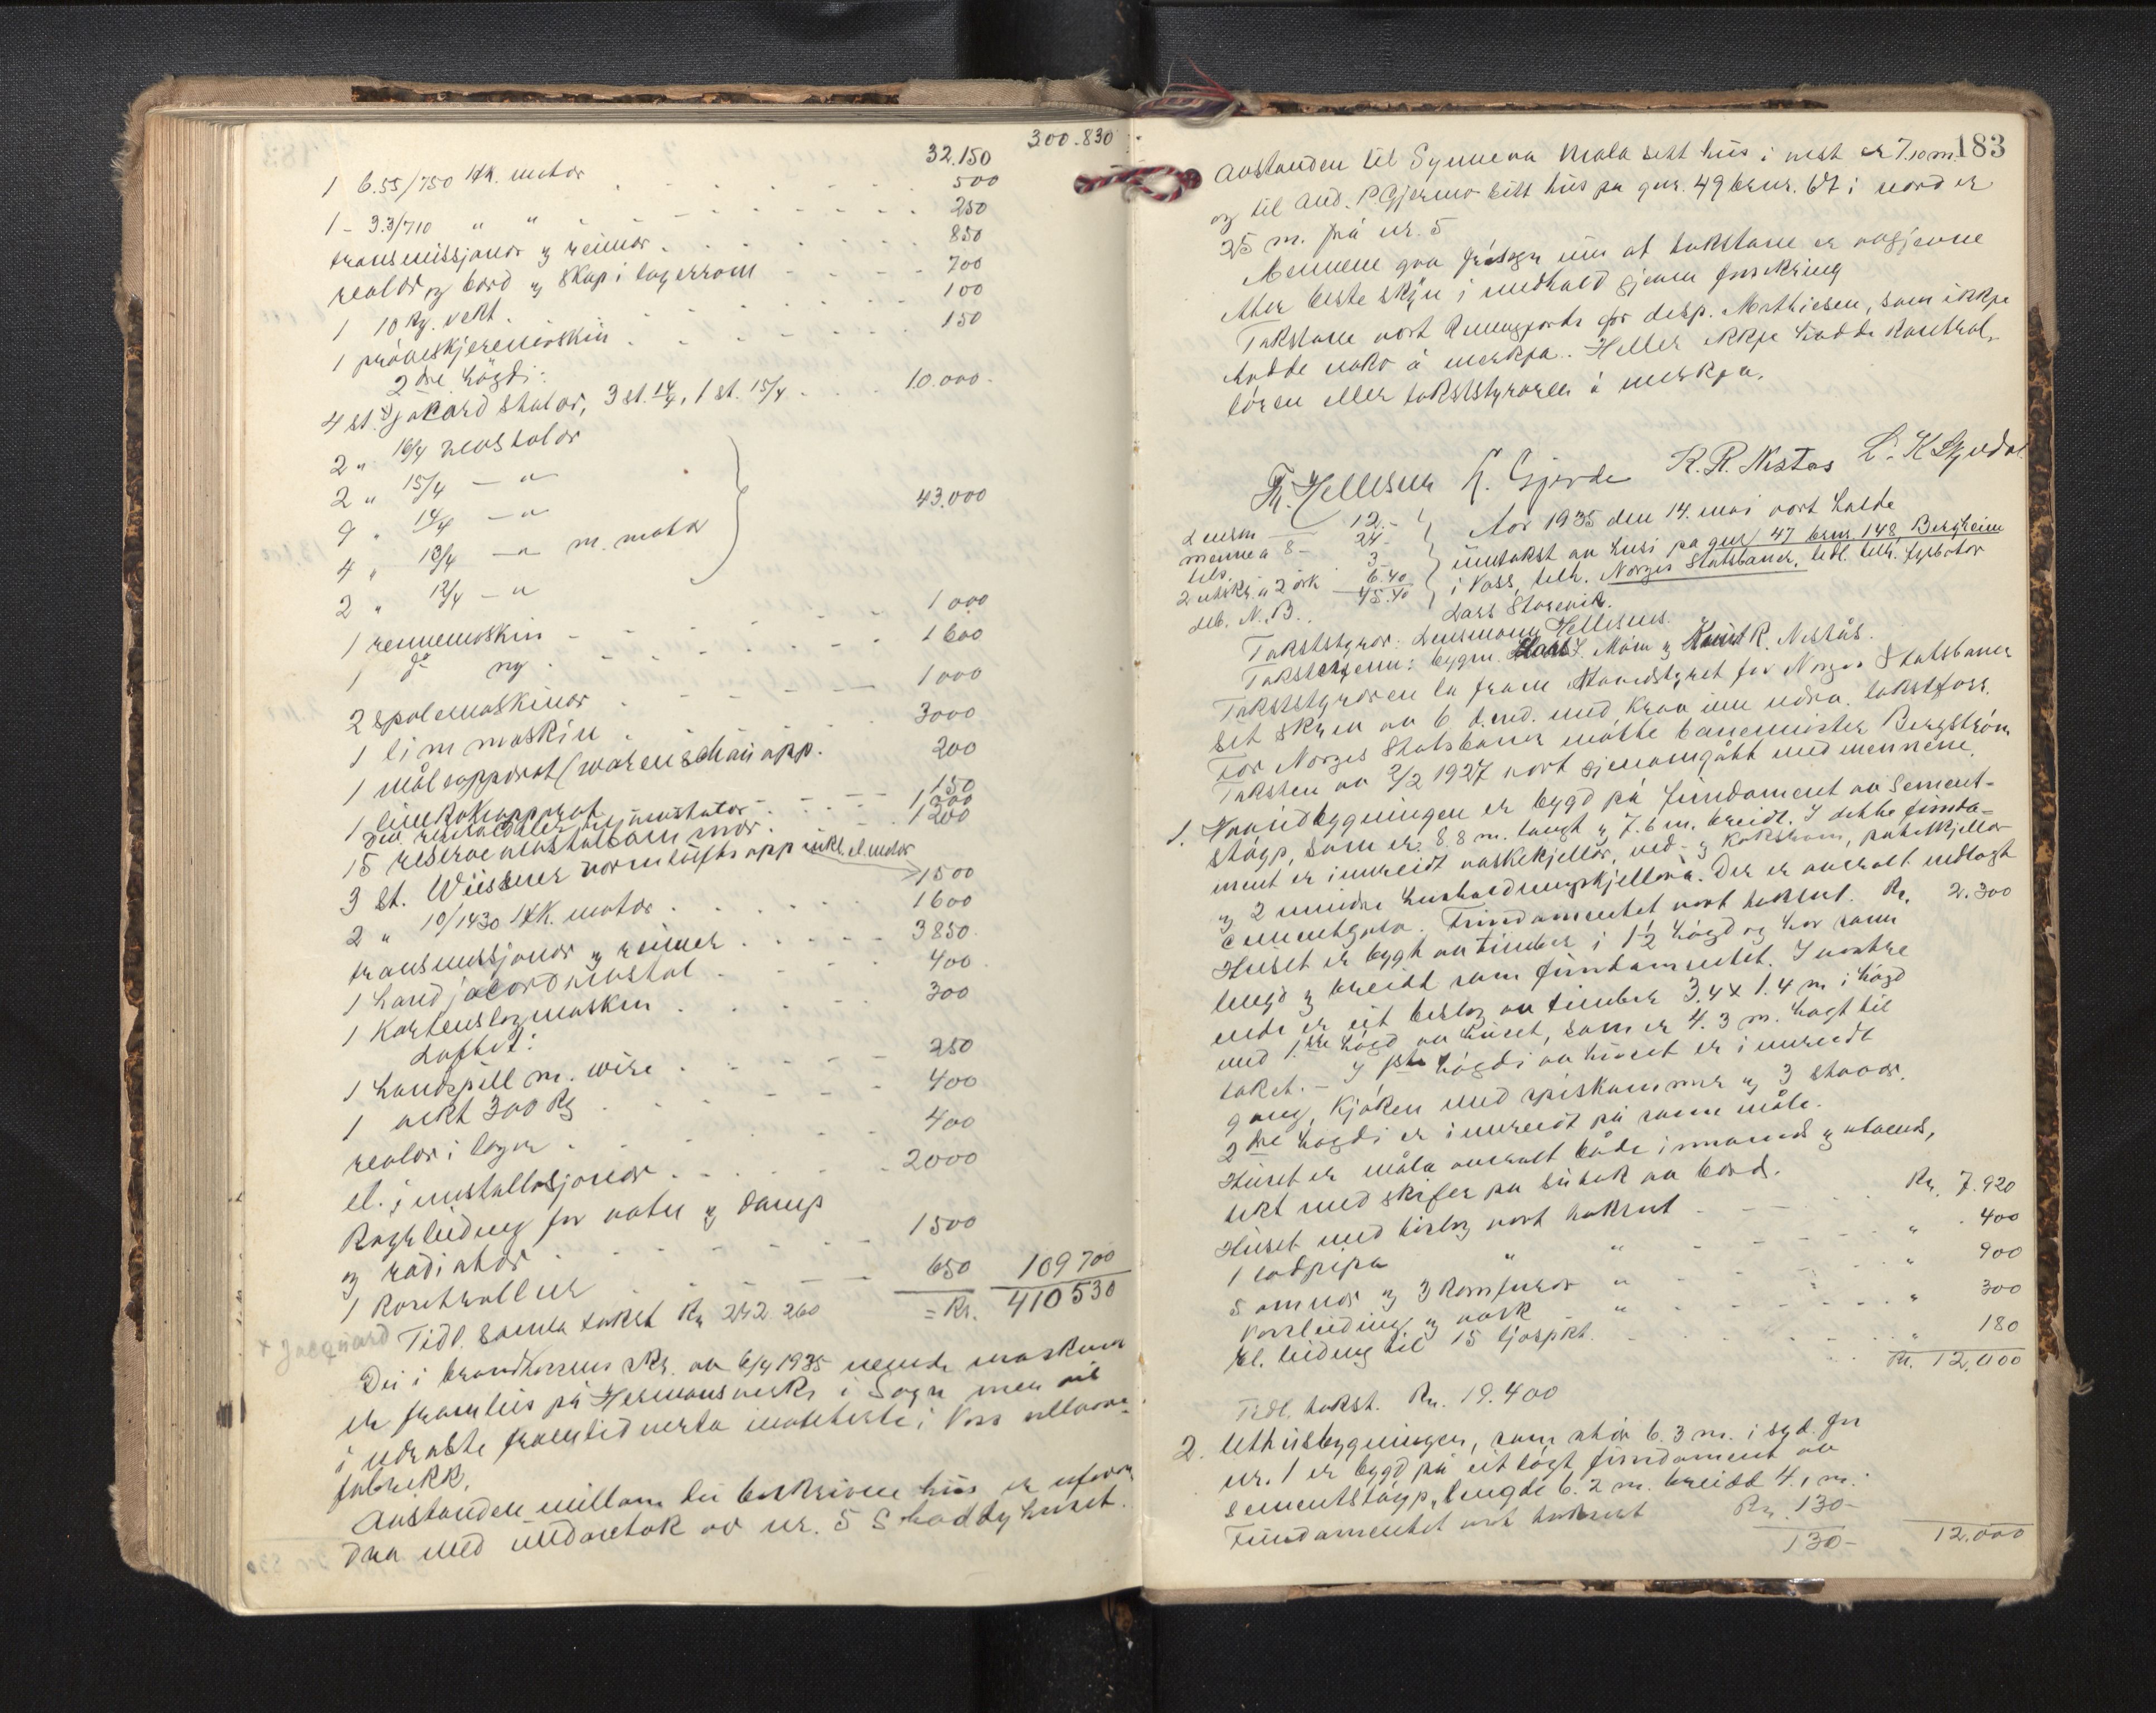 300.830
32.150
1 6.55/750 HK. motor . . . . . 500
1 - 3.3/710 " " - - - . . . 250
transmissjonar og reimar . . . . . 850
reolar og bord og skap i lagerrom - - - 700
1 10 kg. vekt . . . . . 100
1 pröveskjeremaskin . . . . . 150
2dre högdi:
4 st. x) jakard stolar, 3 st. 14/4, 1 st. 15/4 . . . 10.000.-
2 " 16/4 vevstolar
2 " 15/4 - "
9 " 14/4 - "
4 " 13/4 - " m. motor
43.000
2 " 12/4 - "
1 rennemaskin - - - - 1000
1 do ny . - - - - 1600
2 spolemaskinar . . . . 1000
1 limmaskin . . . . 3000
1 målapparat (warenschau app. 200
1 limkokapparat . . . 150
Div. 1.200
15 reserve 1200
3 st. Wiessner varmlufts app inkl. el. motor
1500
2 " 10/1430 HK. motor . . . . 1600
transmissjonar og reimer . . . . 3850.
1 handjacord vevstol . - - - 400.
1 Kartenslagmaskin . . . . 300
Loftet:
1 handspill m. wire . . - - - 250
1 vekt 300 kg . . . . . 400
reolar i lager . . . . . 400
el. installasjonar . . . . . 2000
Røyrleiding for vatn og damp
og radiatorar . - - - - 1500
1 kontrollur . . - - - 650 109700
= Kr. 410530
x Jacquard
Tidl. samla takst Kr 242.260
Dei i brandkassens skr. av 6/4 1935 nemnde maskinar
er framleis på Hermansverk i Sogn men vil
i næraste framtid verta innstallert i Voss ullvare-
fabrikk.
Avstanden millom dei beskrivne hus er uforan-
dra med undantak av nr. 5 S huset.
183
Avstanden til Synneva Mala sitt hus i vest er 7.10 m.
og til And. P. Gjermo sitt hus på gnr. 49 brnr. 67 i nord er
25 m. frå nr. 5
Mennene gav frásegn um at takstane er avgjevne
etter beste skjön i medhald gjeven forsikring
Takstane vart kunngjorde for disp. Mathiesen, som ikkje
hadde noko å merkja. Heller ikkje hadde kontrol-
lören eller takststyraren å merkja.
Th. Hellesen K. Gjerde K. R. Nestås L. K. Gjerdal
Lensm 12.-
mennene á 8- 24-
tils. 3
2 utskr. á 2 ark 6.40
deb. N.B. 45.40
Aar 1935 den 14. mai vart halde
umtakst av husi på gnr 47 brnr. 148, Bergheim
i Voss, tilh. Norges Statsbaner, tidl. tilh. fyrbötar
Lars Storevik.
Takststyrar: Lensmann Hellesen.
Takstmenn: bygm. Lars L. Møen og Knut R. Nestås.
Takststyraren la fram Hovedstyret for Norges Statsbaner
sit skriv av 6 d.md. med krav um takstforr.
For Norges Statsbaner møtte banemeister Bergström
Taksten av 2/2 1927 vart gjenomgått med mennene.
1. Vaaningsbygningen er bygd på fundament av sement-
stöyp, som er 8.8 m. langt og 7.6 m. breidt. I dette funda-
ment er innreidt vaskekjellar, ved- og koksrom, potetkjellar
og 2 mindre hushaldningskjellara. Der er overalt nedlagt
cementgolv. Fundamentet vart taksert. Kr. 2.300
Huset er bygt av timber i 1½ högd og har same
lengd og breidd som fundamentet. I nordre
ende er eit bislag av timber 3.4 x 1.4 m i högd
med 1ste högd av huset, som er 4.3 m. høgt til
taket. - I 1ste högdi av huset er innreidt
gang, kjöken med spiskammer og 3 stovor.
2dre högdi er innreidt på same måte.
Huset er måla overalt både innvends og utvends,
tekt med skifer på sutak av bord.
Huset med bislag vart taksert - - - Kr. 7.920
1 lodpipa " " - - - - " . 400
5 omnar og 3 komfurar " - - - - " 900
Vassleiding og vask " - - - " 300
El. leiding til 15 ljospkt. - - - - " 180
Kr. 12,000
Tidl. takst. Kr. 19.400
2. Uthusbygningen, som står 6.3 m. i syd for
nr. 1 er bygd på eit lágt fundament av
sementstöyp, lengde 6.2 m. breidd 4.1 m.
Fundamentet vart taksert Kr. 130-
130- 12.000